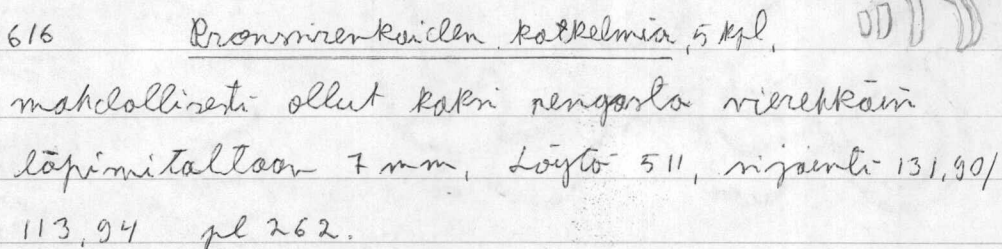 616 Pronssirenkaiden katkelmia, 5 kpl,
mahdollisesti ollut kaksi rengasta vierekkäin
läpimitaltaan 7 mm, Löytö 511, sijainti 131,90/
113,94 pl 262.